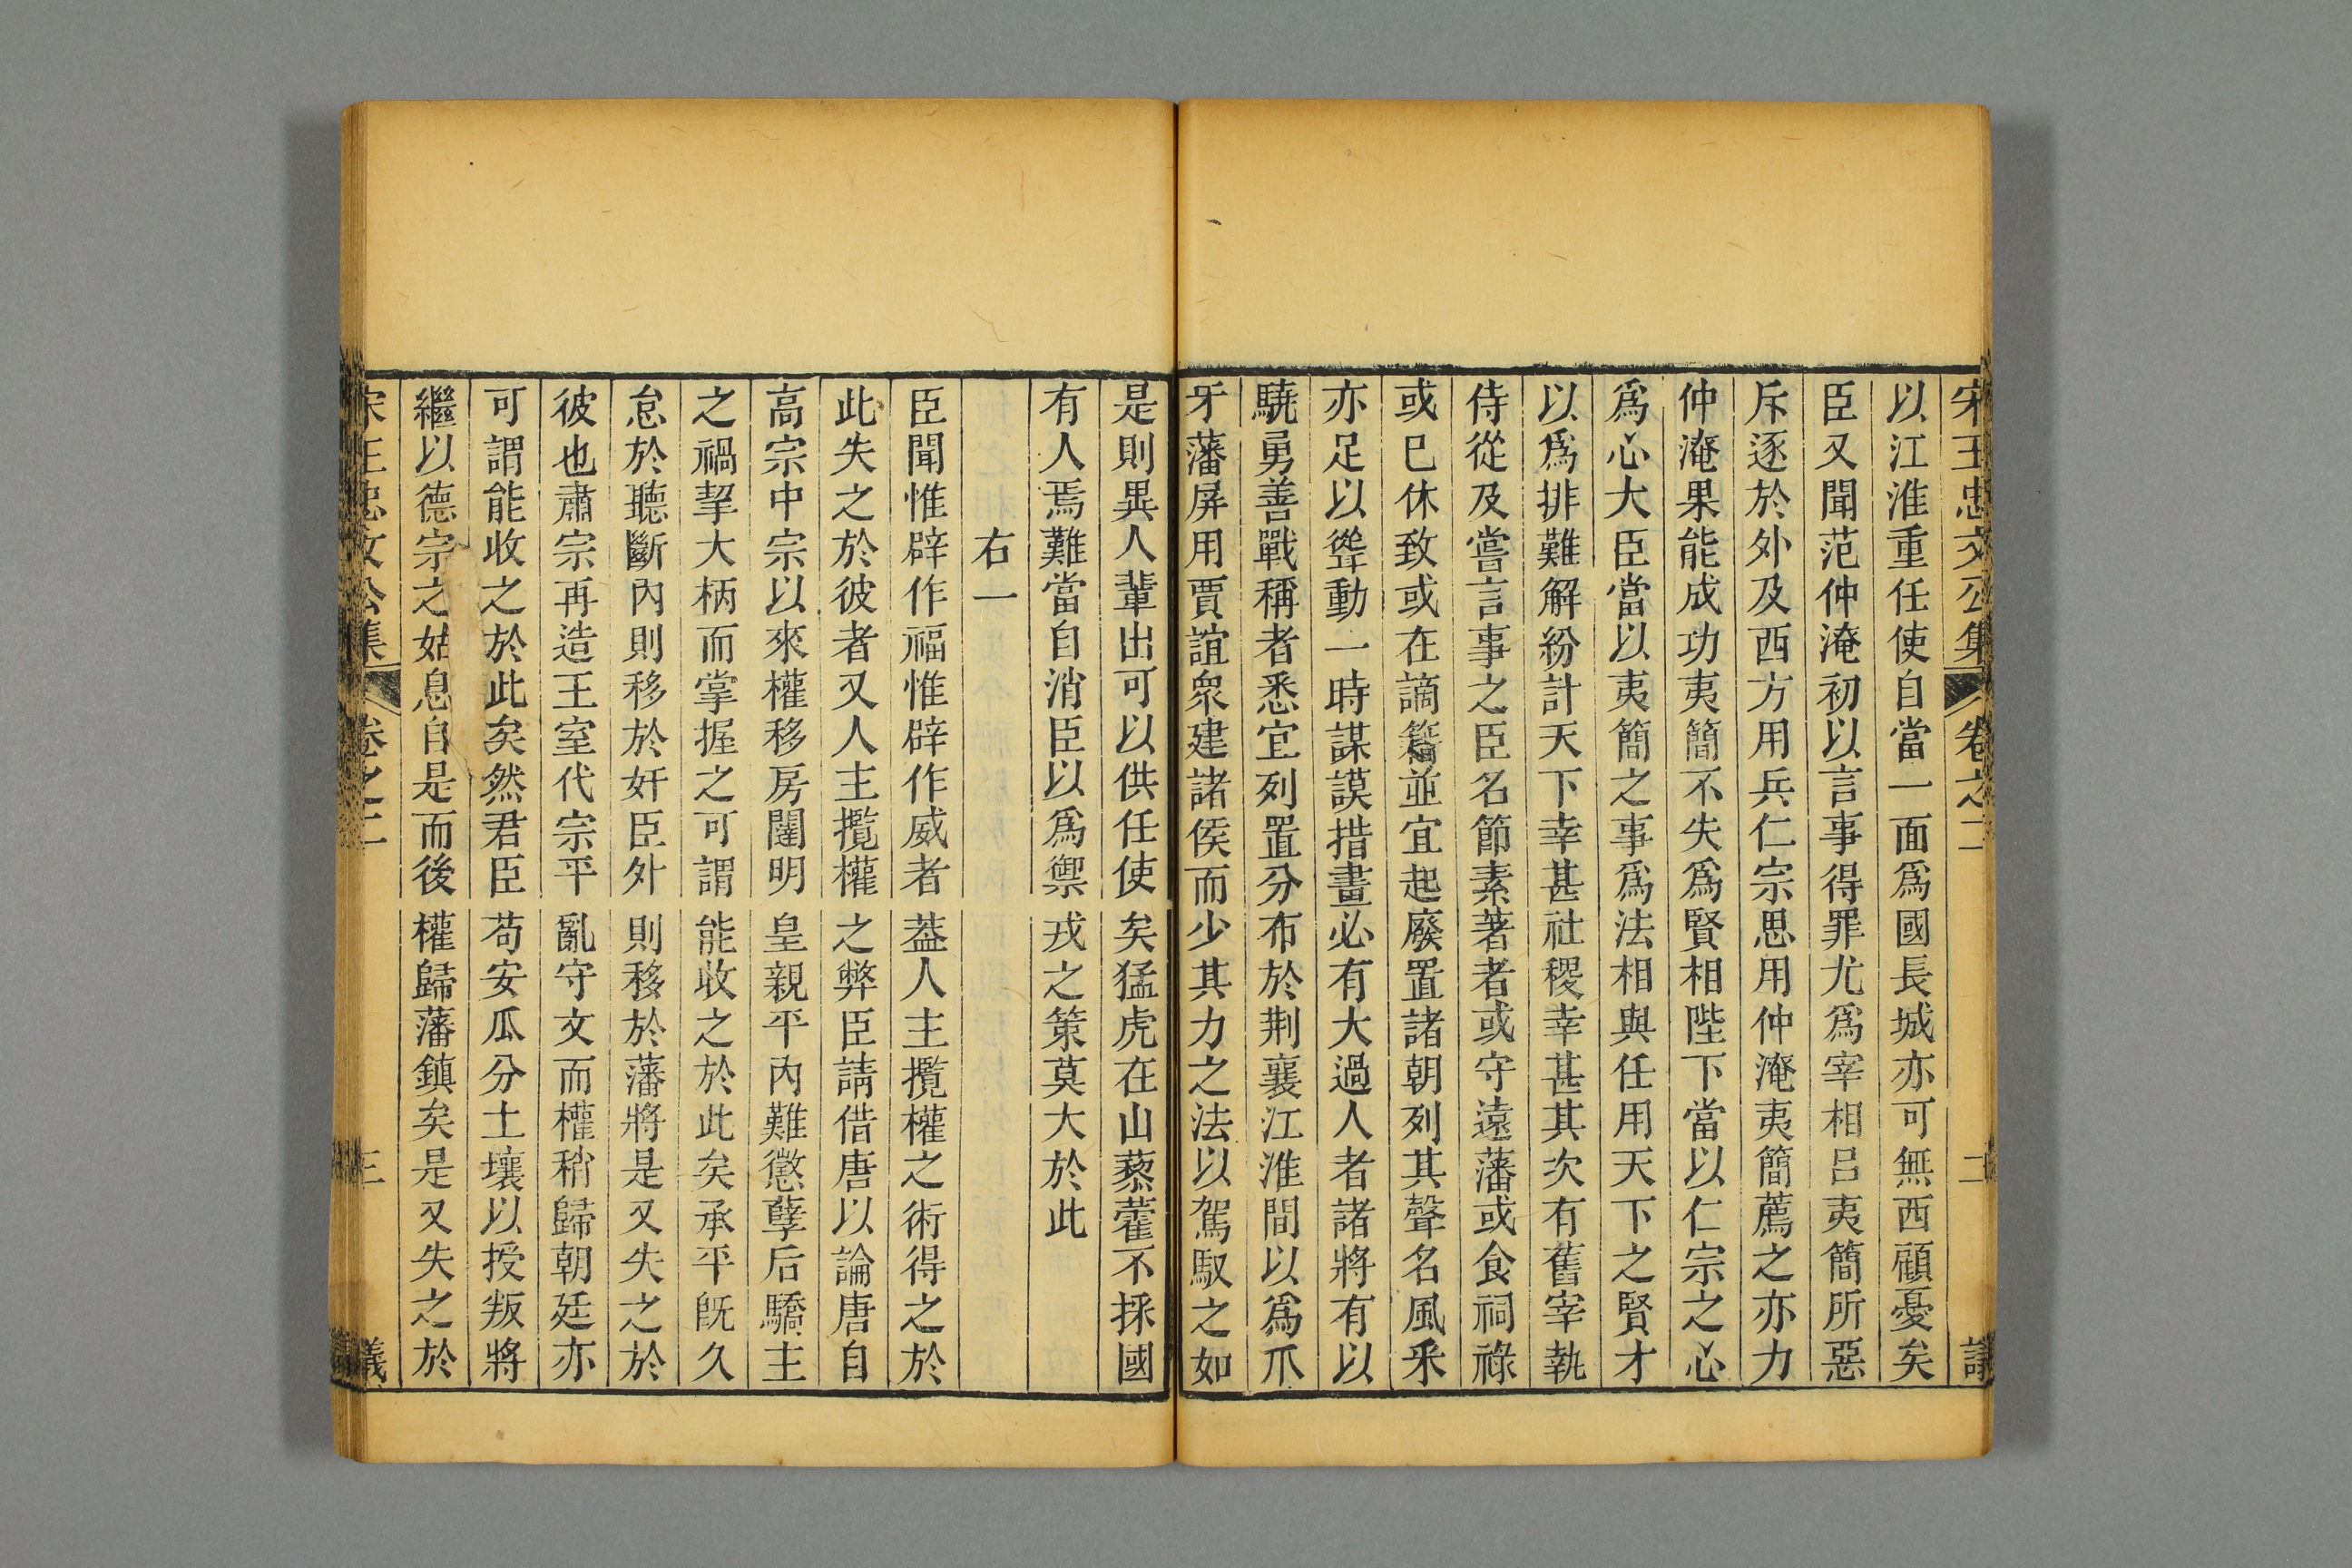 宋王忠文公集 卷之二 二 議
以江淮重任使自當一面爲國長城亦可無西顧憂矣
臣又聞范仲淹初以言事得罪尤爲宰相呂夷簡所惡
斥逐於外及西方用兵仁宗思用仲淹夷簡薦之亦力
仲淹果能成功夷簡不失爲賢相陛下當以仁宗之心
爲心大臣當以夷簡之事爲法相與任用天下之賢才
以爲排難解紛計天下幸甚社稷幸甚其次有舊宰執
侍從及嘗言事之臣名節素著者或守遠藩或食祠祿
或已休致或在謫籍並宜起廢置諸朝列其聲名風采
亦足以聳動一時謀謨措畫必有大過人者諸將有以
驍勇善戰稱者悉宜列置分布於荆襄江淮間以爲爪
牙藩屏用賈誼衆建諸侯而少其力之法以駕馭之如
是則異人輩出可以供任使矣猛虎在山藜藿不採國
有人焉難當自消臣以爲禦戎之策莫大於此
右一
臣聞惟辟作福惟辟作威者葢人主攬權之術得之於
此失之於彼者又人主攬權之弊臣請借唐以論唐自
高宗中宗以來權移房闥明皇親平內難懲孽后驕主
之禍挈大柄而掌握之可謂能收之於此矣承平旣久
怠於聽斷內則移於奸臣外則移於藩將是又失之於
彼也肅宗再造王室代宗平亂守文而權稍歸朝廷亦
可謂能收之於此矣然君臣苟安瓜分土壤以授叛將
繼以德宗之姑息自是而後權歸藩鎮矣是又失之於
宋王忠文公集 卷之二 三 議